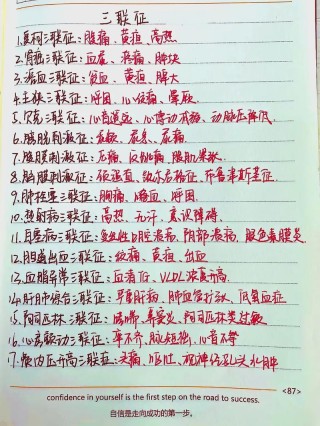 三联征
1.夏柯三联征:腹痛、黄疸、高热
2.肾癌三联征:血尿、疼痛、肿块
3.溶血三联征:贫血、黄疸、脾大
4.主狭三联征:呼困、心绞痛、晕厥
5.贝克三联征:心音遥远、心搏动减弱、动脉压降低
6.膀胱刺激征:尿频、尿急、尿痛
7.腹膜刺激征:压痛、反跳痛、腹肌紧张
8.脑膜刺激征:颈强直、克尼格征、布鲁津斯基征
9.肺栓塞三联征:胸痛、咯血、呼困
10.热射病三联征:高热、无汗、意识障碍
11.白塞病三联征:复发性口腔溃疡、阴部溃疡、眼色素膜炎
12.胆道出血三联征:绞痛、黄疸、出血
13.血脂异常三联征:血清TG、VLDL浓度升高
14.肝肺综合三联征:早期肝病、肺血管扩张、低氧血症
15.阿司匹林三联征:哮喘、鼻窦炎、阿司匹林类过敏
16.心房颤动三联征:率不齐、脉短绌、心音不等
17.颅内压升高三联征:头痛、呕吐、视神经乳头水肿
<87>
confidence in yourself is the first step on the road to success.
自信是走向成功的第一步。